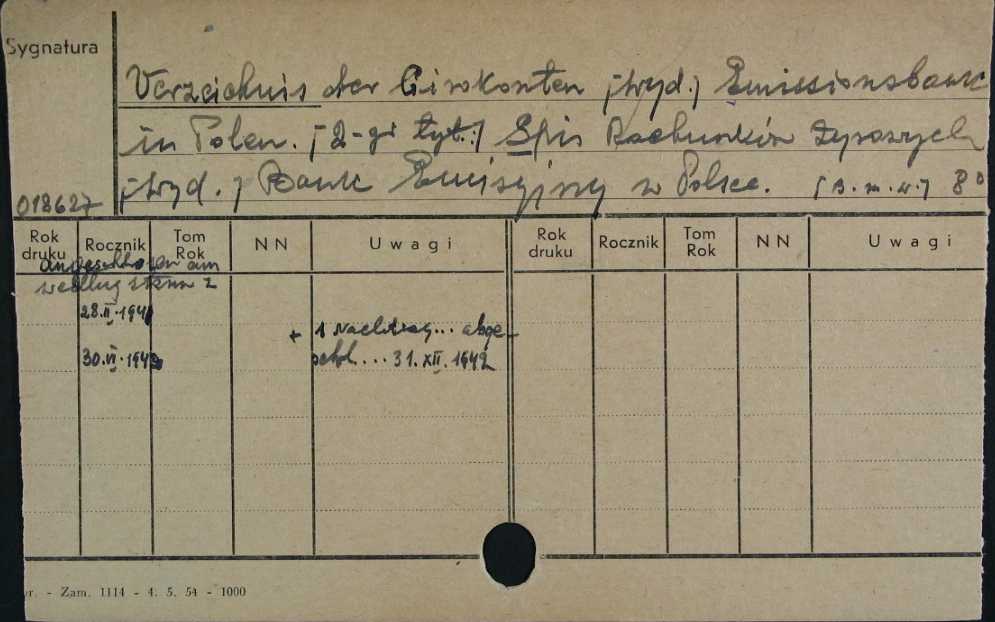 Sygnatura
Verzeichnis der Girokonten /:wyd.:/ Emissionsbank
in Polen. /:2-gi tyt.:/ Spis Rachunków Żyrowych
/:wyd.:/ Bank Emisyjny w Polsce. /:B.m.w.:/ 8°
018627
Rok druku Rocznik Tom Rok NN Uwagi Rok druku Rocznik Tom Rok NN Uwagi
abgeschlossen am
według stanu z
28.II.1941
+ 1 Nachtrag... abge-
30.VI.1942 schl... 31.XII.1942
yr. - Zam. 1114 - 4. 5. 54 - 1000